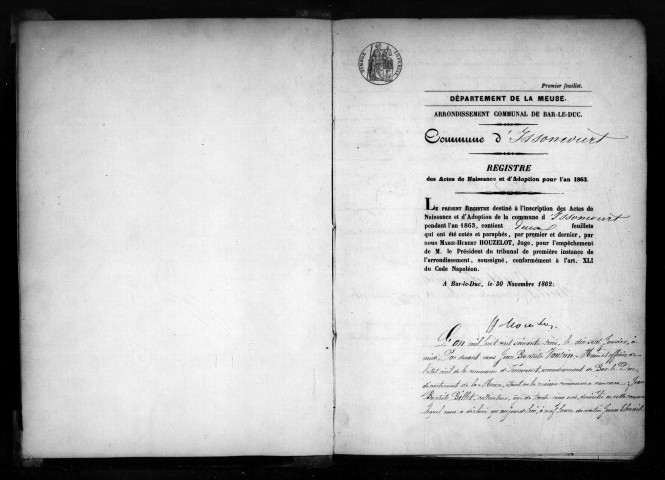 TIMBRE IMPERIAL
Premier feuillet.
DÉPARTEMENT DE LA MEUSE.
ARRONDISSEMENT COMMUNAL DE BAR-LE-DUC.
Commune d'Issoncourt
REGISTRE
des Actes de Naissance et d'Adoption pour l'an 1863.
LE PRÉSENT REGISTRE destiné à l'inscription des Actes de
Naissance et d'Adoption de la commune d'Issoncourt
pendant l'an 1863, contient feuillets
qui ont été cotés et paraphés, par premier et dernier, par
nous MARIE-HUBERT HOUZELOT, Juge, pour l'empêchement
de M. le Président du tribunal de première instance de
l'arrondissement, soussigné, conformément à l'art. XLI
du Code Napoléon.
A Bar-le-Duc, le 30 Novembre 1862:
L'an mil huit cent soixante trois, le dix sept Janvier, à
midi. Par devant nous Jean Baptiste Maire et officier de
l'état civil de la commune d'Issoncourt, arrondissement de Bar le Duc,
département de la Meuse, dans la maison commune Jean
Baptiste cultivateur, âgé de trente ans, domicilié en cette commune
lequel nous a déclaré qu'aujourd'hui, à neuf heures du matin